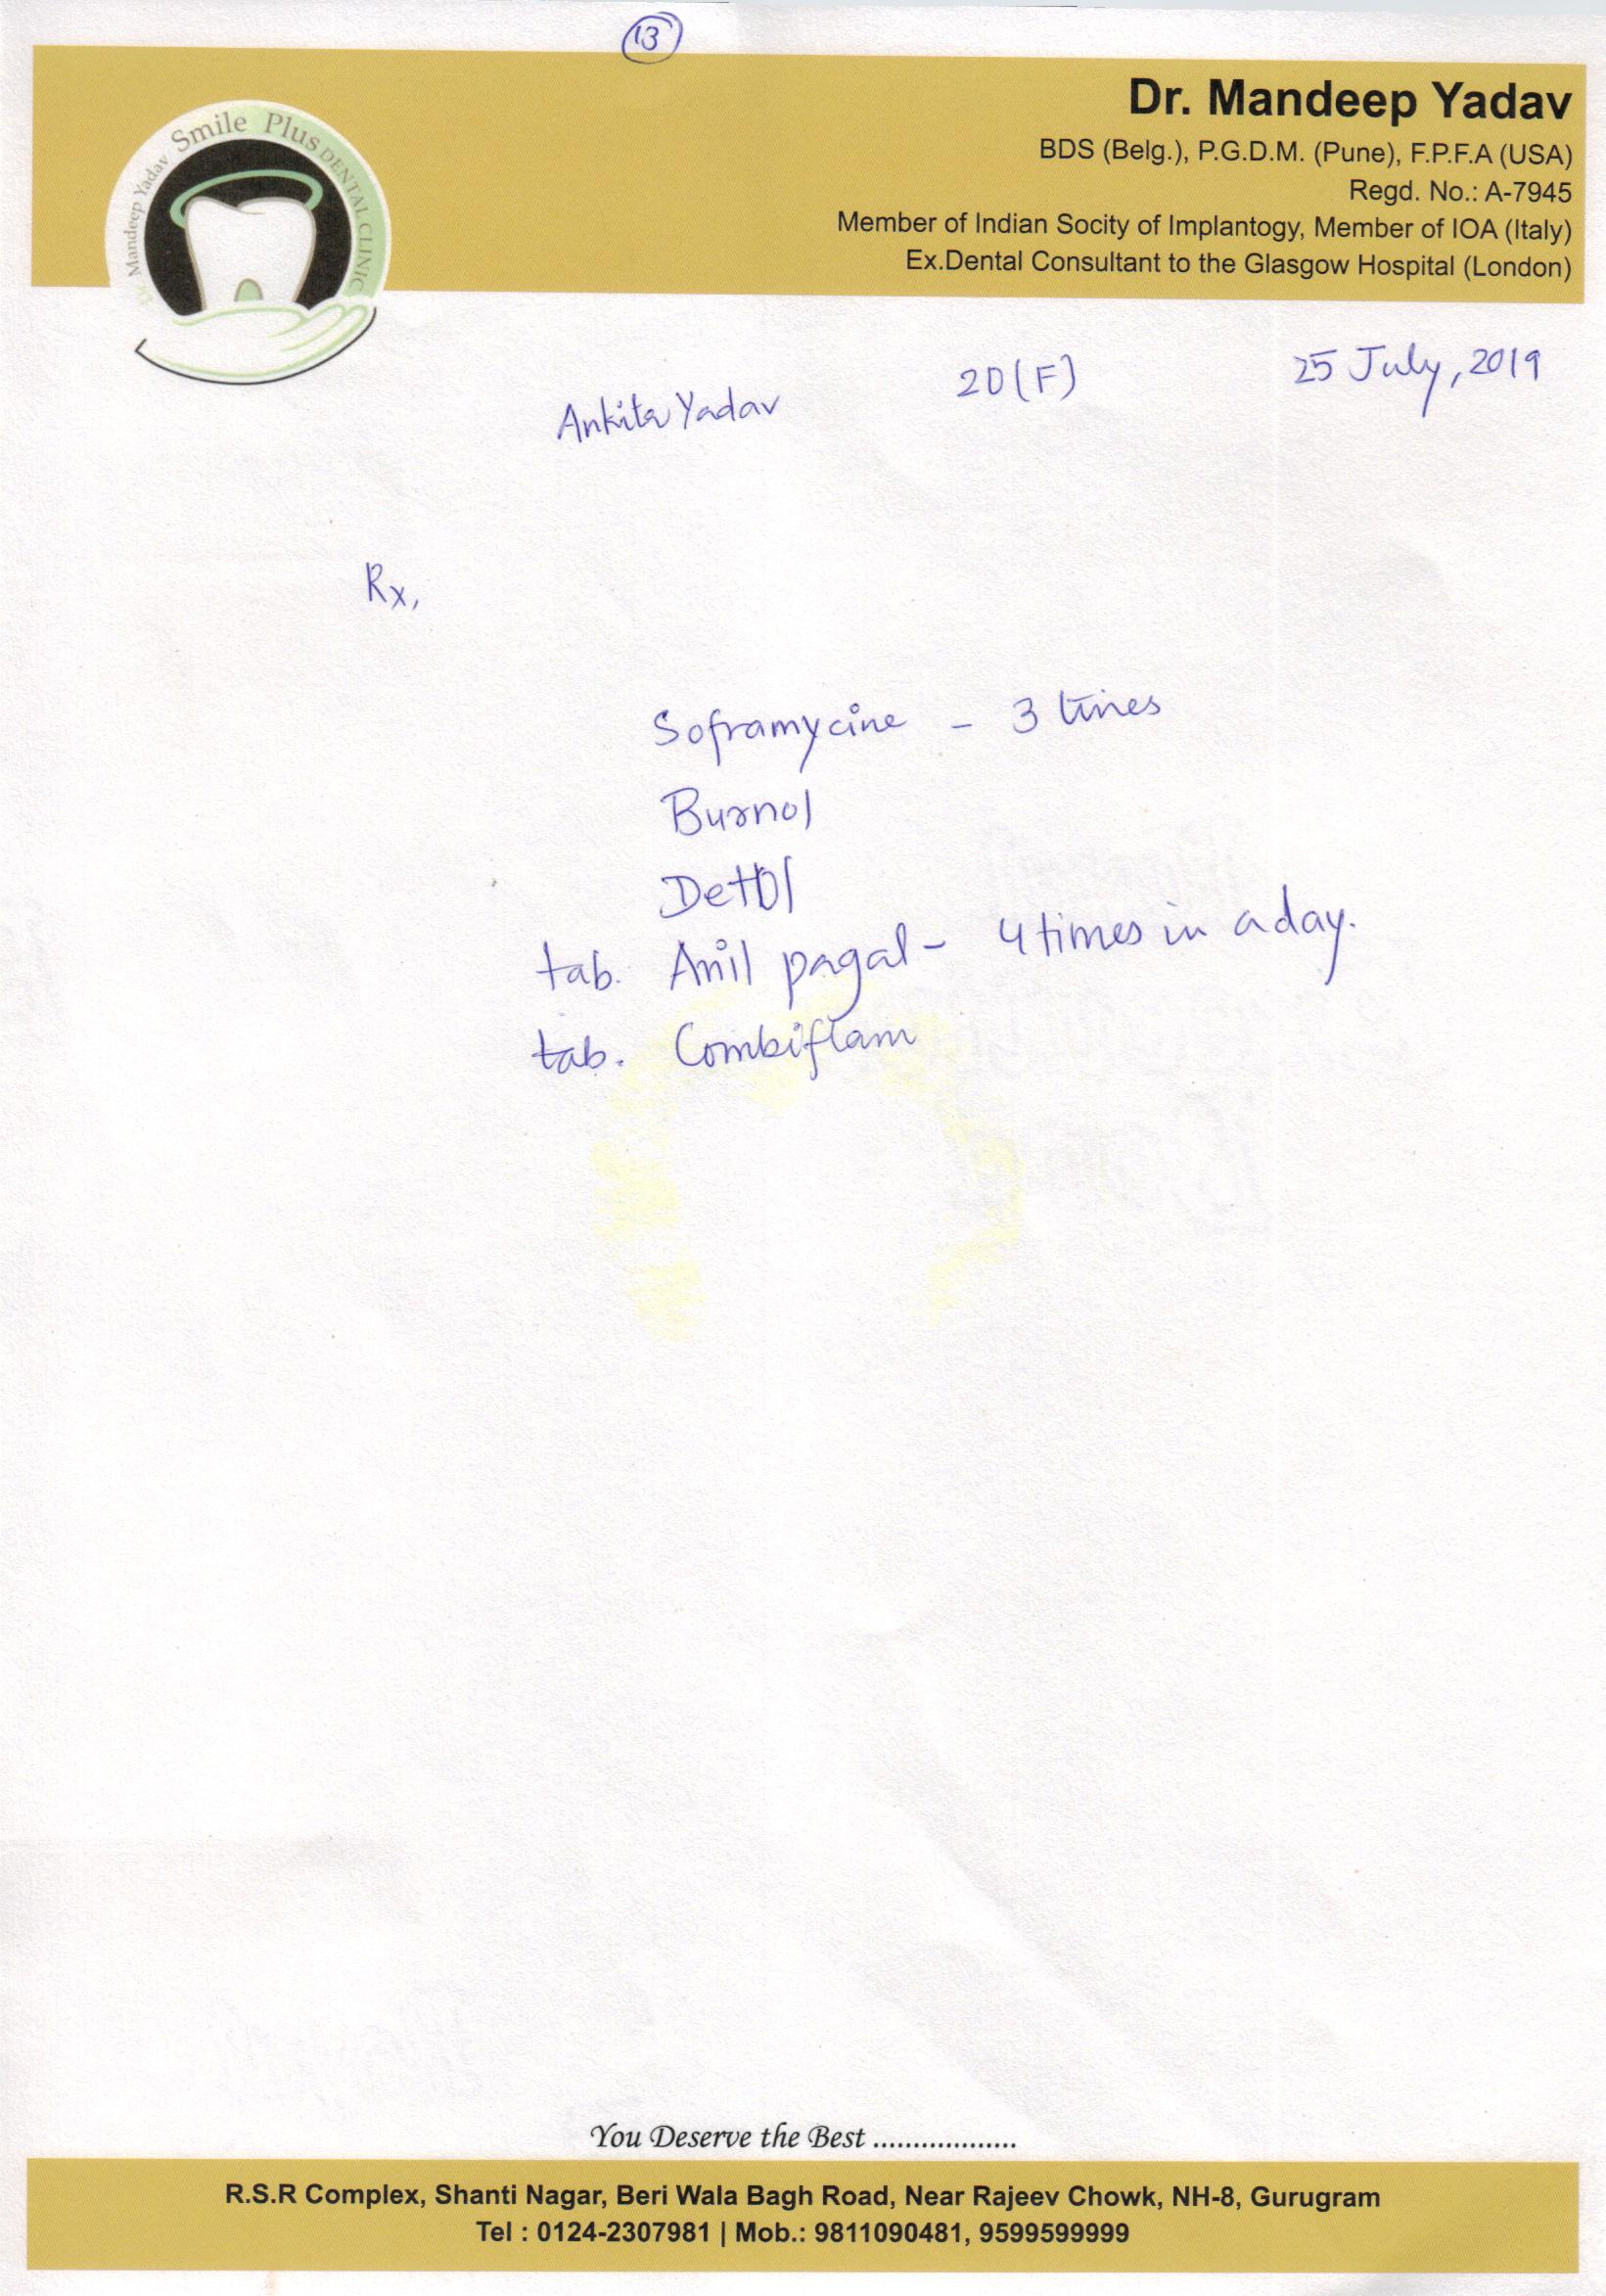 13
Dr. Mandeep Yadav
BDS (Belg.), P.G.D.M. (Pune), F.P.F.A (USA)
Regd. No.: A-7945
Member of Indian Socity of Implantogy, Member of IOA (Italy)
Ex.Dental Consultant to the Glasgow Hospital (London)
Dr. Mandeep Yadav Smile Plus DENTAL CLINIC
Ankita Yadav 20(F) 25 July, 2019
Rx,
Soframycine - 3 times
Burnol
Dettol
tab. Anil pagal - 4 times in a day.
tab. Combiflam
You Deserve the Best ..................
R.S.R Complex, Shanti Nagar, Beri Wala Bagh Road, Near Rajeev Chowk, NH-8, Gurugram
Tel : 0124-2307981 | Mob.: 9811090481, 9599599999